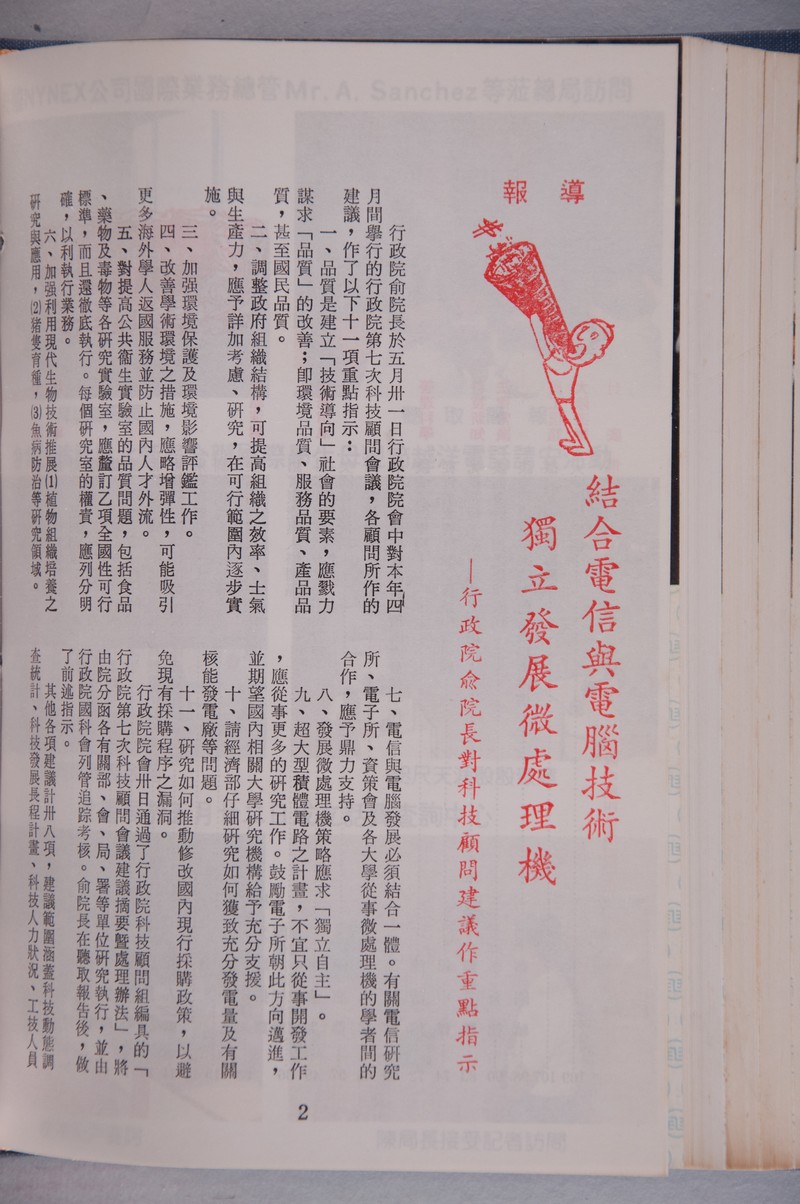 報導
結合電信與電腦技術
獨立發展微處理機
—行政院俞院長對科技顧問建議作重點指示
行政院俞院長於五月卅一日行政院院會中對本年四
月間舉行的行政院第七次科技顧問會議，各顧問所作的
建議，作了以下十一項重點指示：
一、品質是建立「技術導向」社會的要素，應戮力
謀求「品質」的改善；即環境品質、服務品質、產品品
質，甚至國民品質。
二、調整政府組織結構，可提高組織之效率、士氣
與生產力，應予詳加考慮、研究，在可行範圍內逐步實
施。
三、加强環境保護及環境影響評鑑工作。
四、改善學術環境之措施，應略增彈性，可能吸引
更多海外學人返國服務並防止國內人才外流。
五、對提高公共衞生實驗室的品質問題，包括食品
、藥物及毒物等各研究實驗室，應釐訂乙項全國性可行
標準，而且還徹底執行。每個研究室的權責，應列分明
確，以利執行業務。
六、加强利用現代生物技術推展⑴植物組織培養之
研究與應用，⑵猪隻育種，⑶魚病防治等研究領域。
七、電信與電腦發展必須結合一體。有關電信研究
所、電子所、資策會及各大學從事微處理機的學者間的
合作，應予鼎力支持。
八、發展微處理機策略應求「獨立自主」。
九、超大型積體電路之計畫，不宜只從事開發工作
，應從事更多的研究工作。鼓勵電子所朝此方向邁進，
並期望國內相關大學研究機構給予充分支援。
十、請經濟部仔細研究如何獲致充分發電量及有關
核能發電廠等問題。
十一、研究如何推動修改國內現行採購政策，以避
免現有採購程序之漏洞。
行政院院會卅日通過了行政院科技顧問組編具的「
行政院第七次科技顧問會議建議摘要暨處理辦法」，將
由院分函各有關部、會、局、署等單位研究執行，並由
行政院國科會列管追踪考核。俞院長在聽取報告後，做
了前述指示。
其他各項建議計卅八項，建議範圍涵蓋科技動態調
查統計、科技發展長程計畫、科技人力狀況、工技人員
2